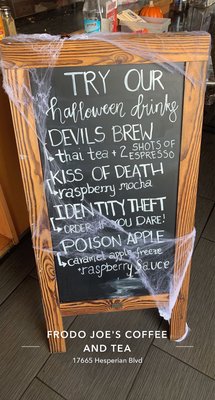 TRY OUR
halloween drinks
DEVILS BREW
thai tea + 2 SHOTS OF ESPRESSO
KISS OF DEATH
raspberry mocha
IDENTITY THEFT
ORDER IF YOU DARE!
POISON APPLE
caramel apple freeze
+ raspberry sauce
FRODO JOE'S COFFEE
AND TEA
17665 Hesperian Blvd